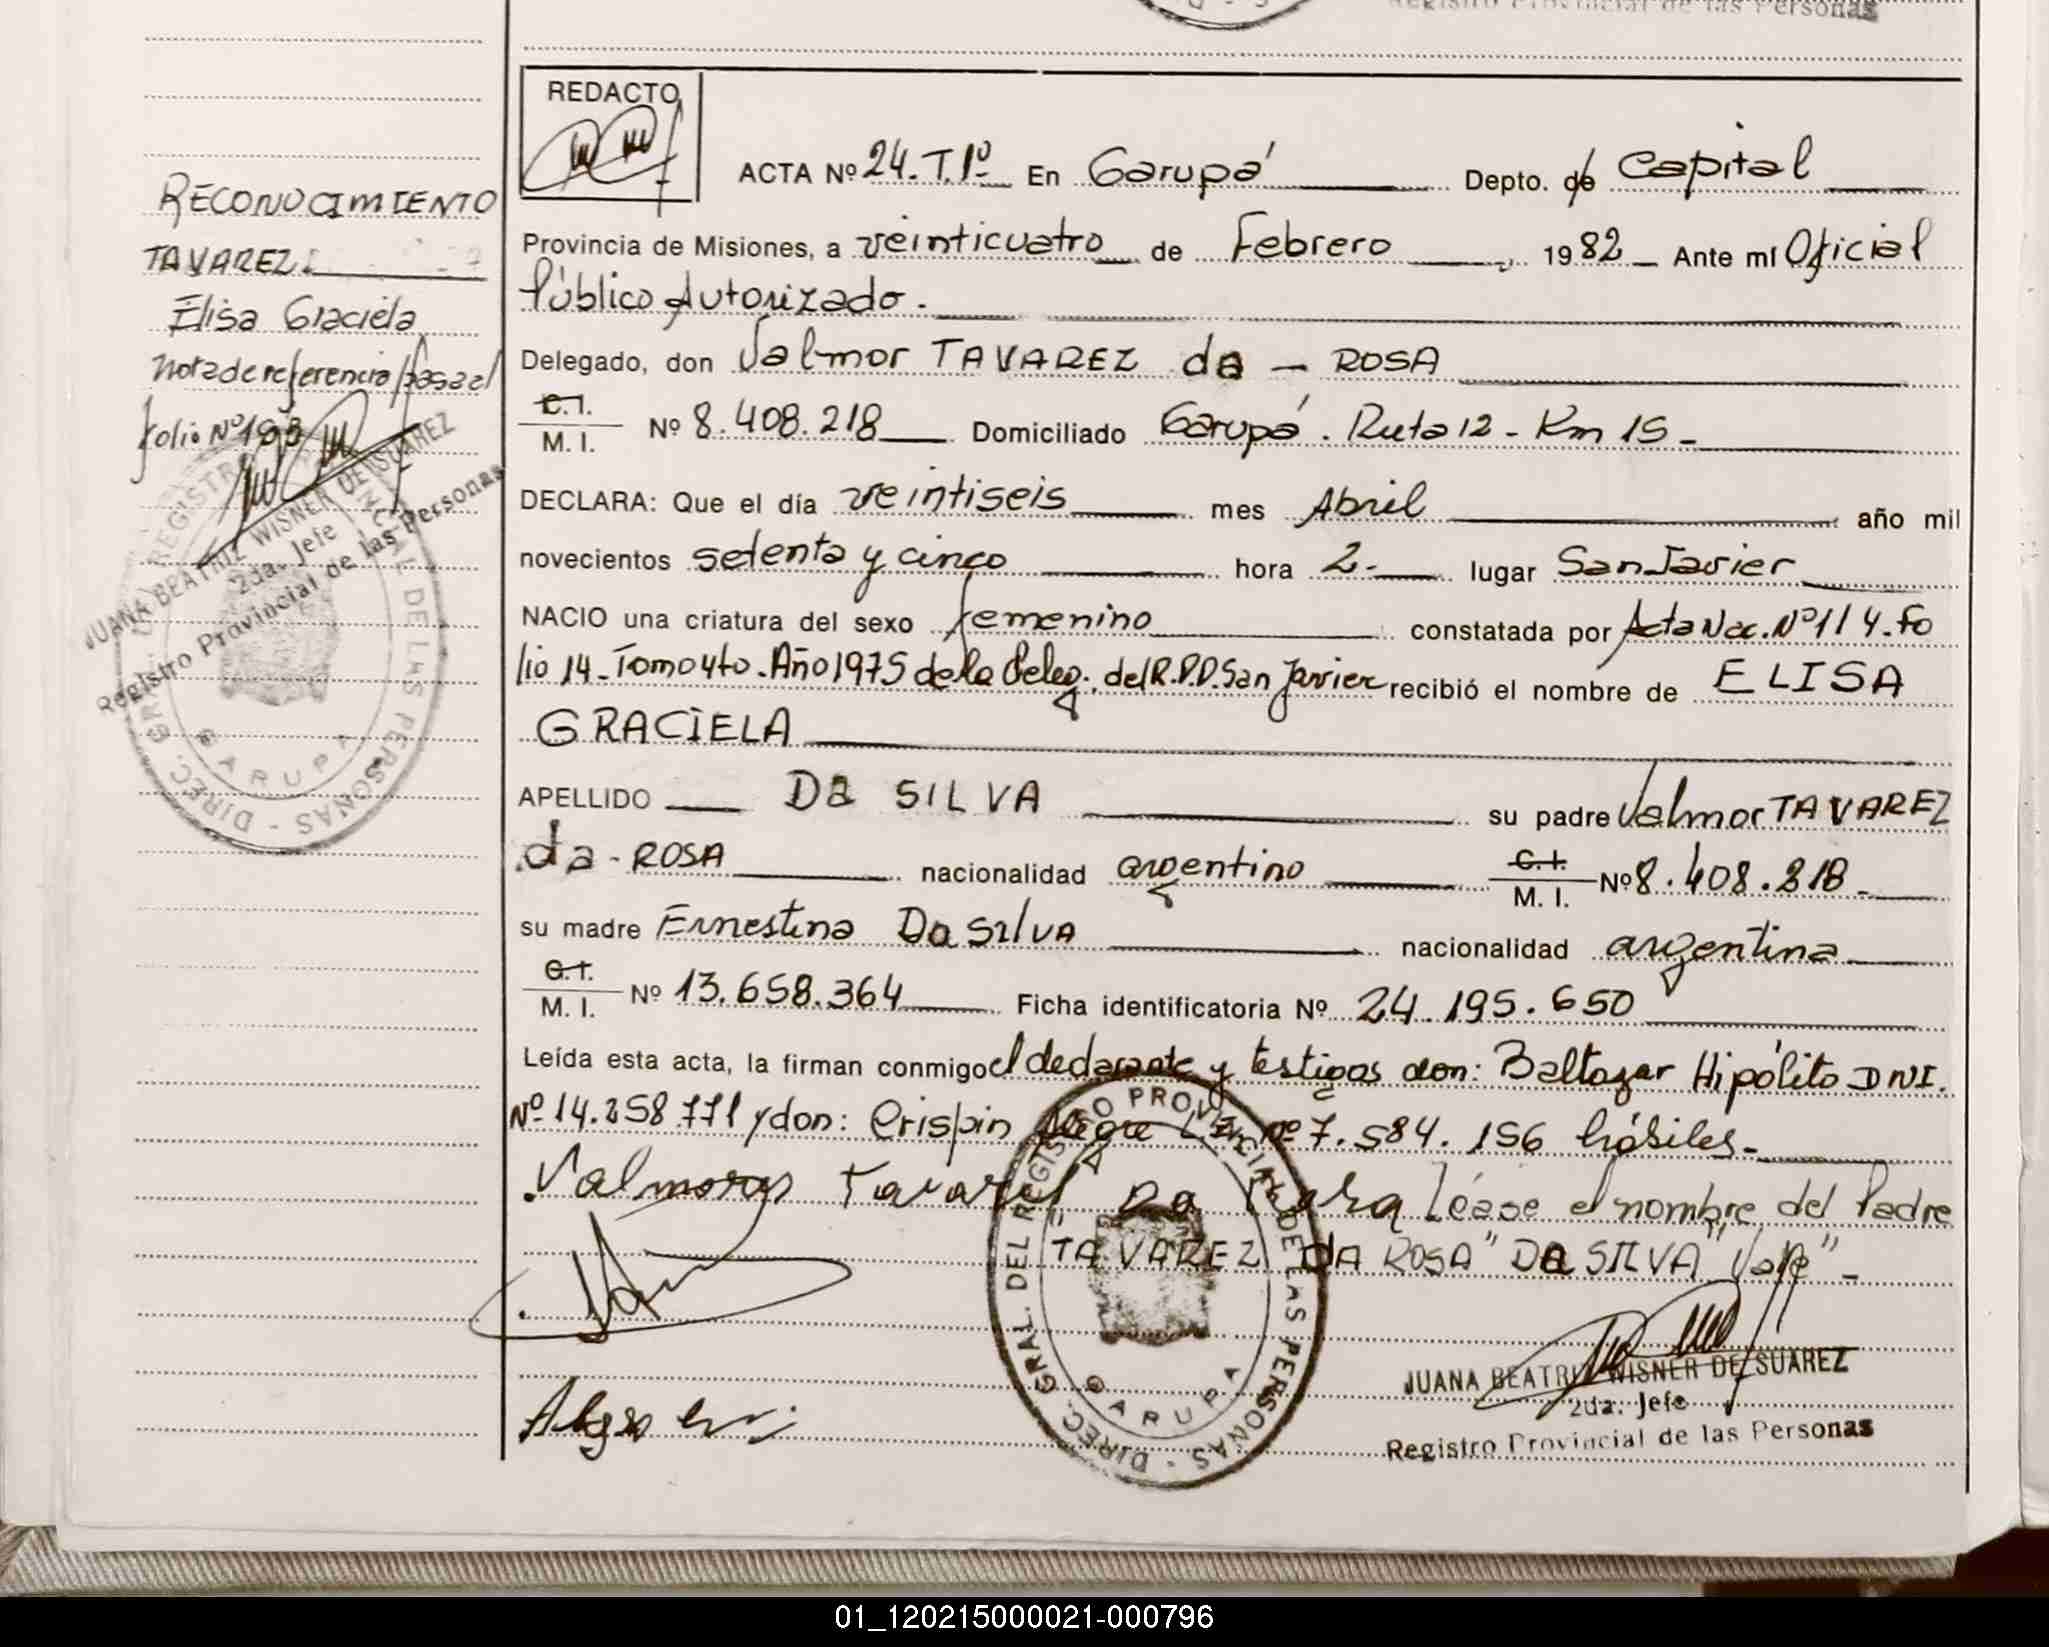 Registro Provincial de las Personas
REDACTO
ACTA Nº 24. T. 1º En Garupá Depto. de Capital
RECONOCIMIENTO
TAVAREZ:
Elisa Graciela
Nota de referencia pasa al
folio Nº
JUANA BEATRIZ WISNER DE SUAREZ
2da. Jefe
Registro Provincial de las Personas
DIREC. GRAL. DEL REGISTRO PROVINCIAL DE LAS PERSONAS - GARUPA
Provincia de Misiones, a veinticuatro de Febrero 1982 Ante mí Oficial
Público Autorizado.
Delegado, don Valmor TAVAREZ da - ROSA
C.I. / M. I. Nº 8.408.218 Domiciliado Garupá. Ruta 12 - Km 15 -
DECLARA: Que el día veintiseis mes Abril año mil
novecientos setenta y cinco hora 2.- lugar San Javier
NACIO una criatura del sexo femenino constatada por Acta Nac. Nº 114. Fo
lio 14 - Tomo 4to. Año 1975 de la Deleg. del R.P.P. San Javier recibió el nombre de ELISA
GRACIELA
APELLIDO Da SILVA su padre Valmor TAVAREZ
da - ROSA nacionalidad argentino C.I. / M. I. Nº 8.408.218
su madre Ernestina Da Silva nacionalidad argentina
C.I. / M. I. Nº 13.658.364 Ficha identificatoria Nº 24.195.650
Leída esta acta, la firman conmigo el declarante y testigos don: Baltazar Hipólito DNI.
Nº 14.258.771 y don: Crispin Alegre L.E. nº 7.584.156 hábiles.-
Valmor Tavarez Da Rosa Léase el nombre del Padre
"TAVAREZ DA ROSA" DA SILVA "Vale" -
DIREC. GRAL. DEL REGISTRO PROVINCIAL DE LAS PERSONAS - GARUPA
JUANA BEATRIZ WISNER DE SUAREZ
2da. Jefe
Registro Provincial de las Personas
01_120215000021-000796